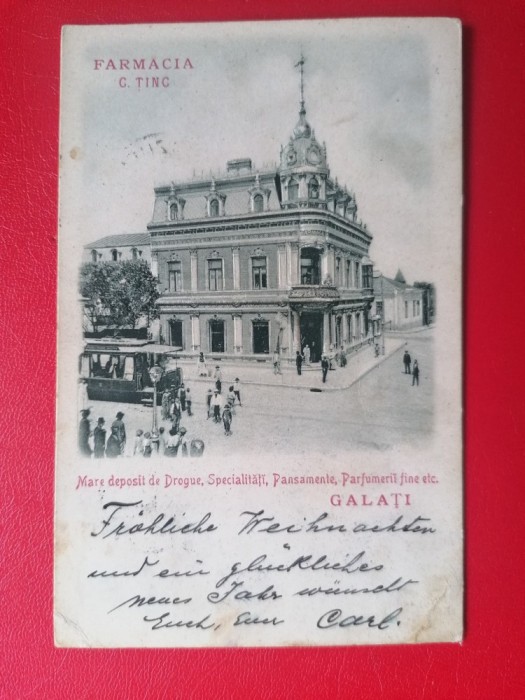 FARMACIA
C. ȚINC
Mare deposit de Drogue, Specialități, Pansamente, Parfumerii fine etc.
GALAȚI
Fröhliche Weihnachten
und ein glückliches
neues Jahr wünscht
Euch, Euer Carl.